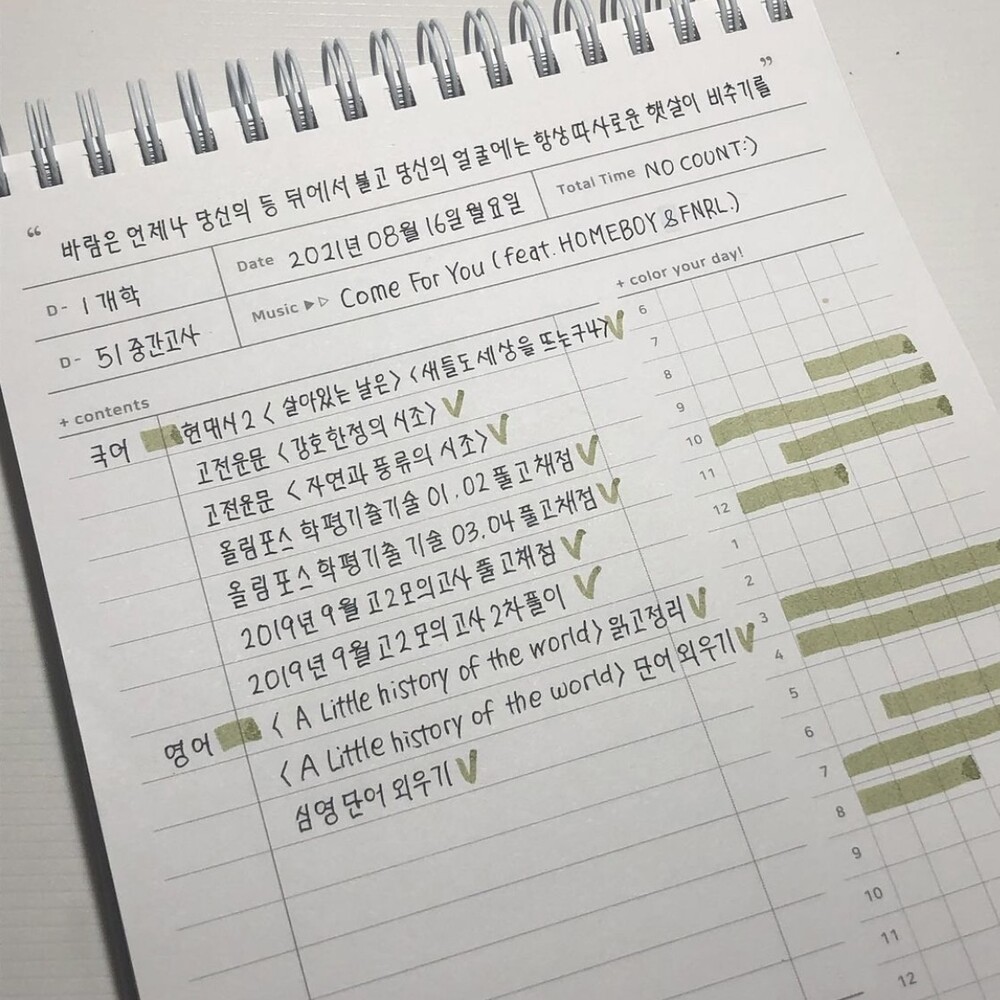 “ 바람은 언제나 당신의 등 뒤에서 불고 당신의 얼굴에는 항상 따사로운 햇살이 비추기를 ”
D- 1 개학
Date 2021년 08월 16일 월요일
Total Time NO COUNT:)
D- 51 중간고사
Music ▶▷ Come For You (feat. HOMEBOY & FNRL.)
+ contents
+ color your day!
국어 현대시 2 < 살아있는 날은> <새들도 세상을 뜨는구나> V
고전운문 <강호한정의 시조> V
고전운문 <자연과 풍류의 시조> V
올림포스 학평기출기술 01. 02 풀고채점 V
올림포스 학평기출 기술 03. 04 풀고채점 V
2019년 9월 고2모의고사 풀고채점 V
2019년 9월 고2 모의고사 2차풀이 V
영어 < A Little history of the world> 읽고정리 V
< A Little history of the world> 단어 외우기 V
심영단어 외우기 V
6
7
8
9
10
11
12
1
2
3
4
5
6
7
8
9
10
11
12